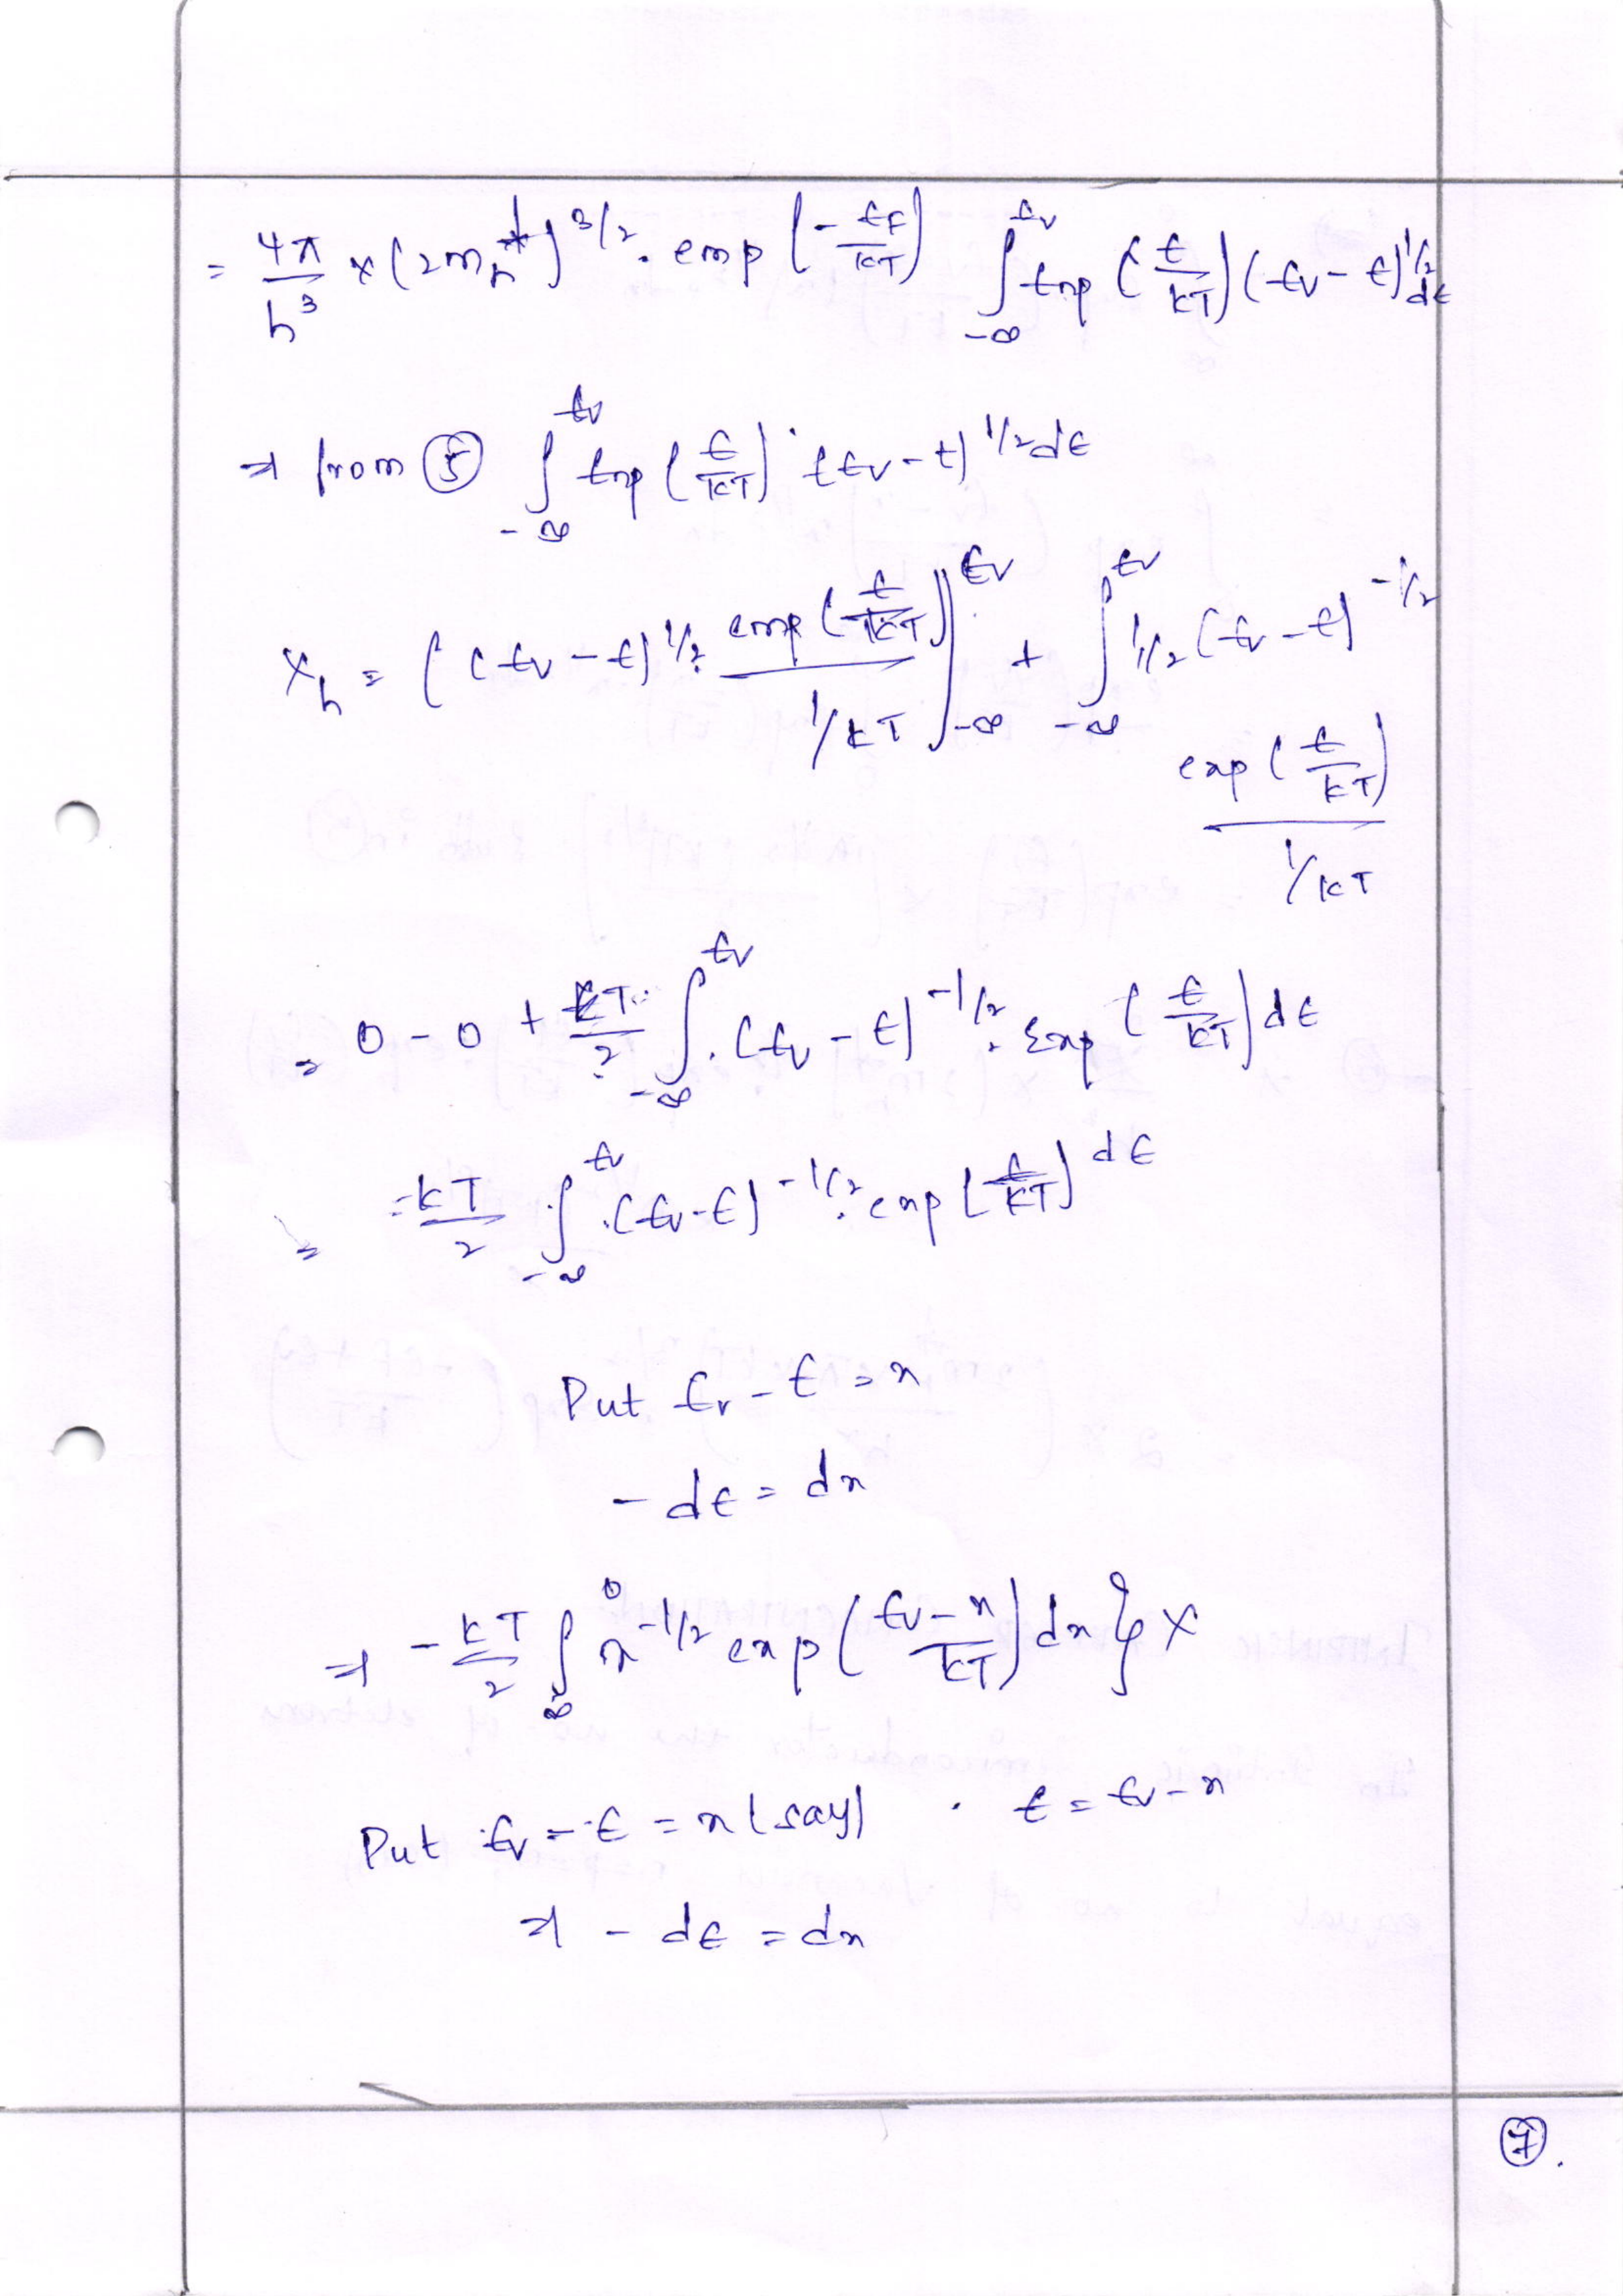 = 4π/h³ × (2m_h*)^3/2 . exp (-E_F/kT) ∫_-∞^Ev Exp (E/kT) (Ev - E)^1/2 dE
⇒ from ⑤ ∫_-∞^Ev Exp (E/kT) . (Ev - E)^1/2 dE
X_h = ( (Ev - E)^1/2 . exp (E/kT) / 1/kT ]_-∞^Ev + ∫_-∞^Ev 1/2 (Ev - E)^-1/2
exp (E/kT) / 1/kT
= 0 - 0 + kT/2 ∫_-∞^Ev . (Ev - E)^-1/2 . Exp (E/kT) dE
= kT/2 ∫_-∞^Ev . (Ev - E)^-1/2 . exp (E/kT) dE
Put Ev - E = x
- dE = dx
⇒ - kT/2 ∫_∞^0 x^-1/2 exp ( Ev - x / kT ) dx } X
Put Ev - E = x (say) . E = Ev - x
⇒ - dE = dx
⑦.